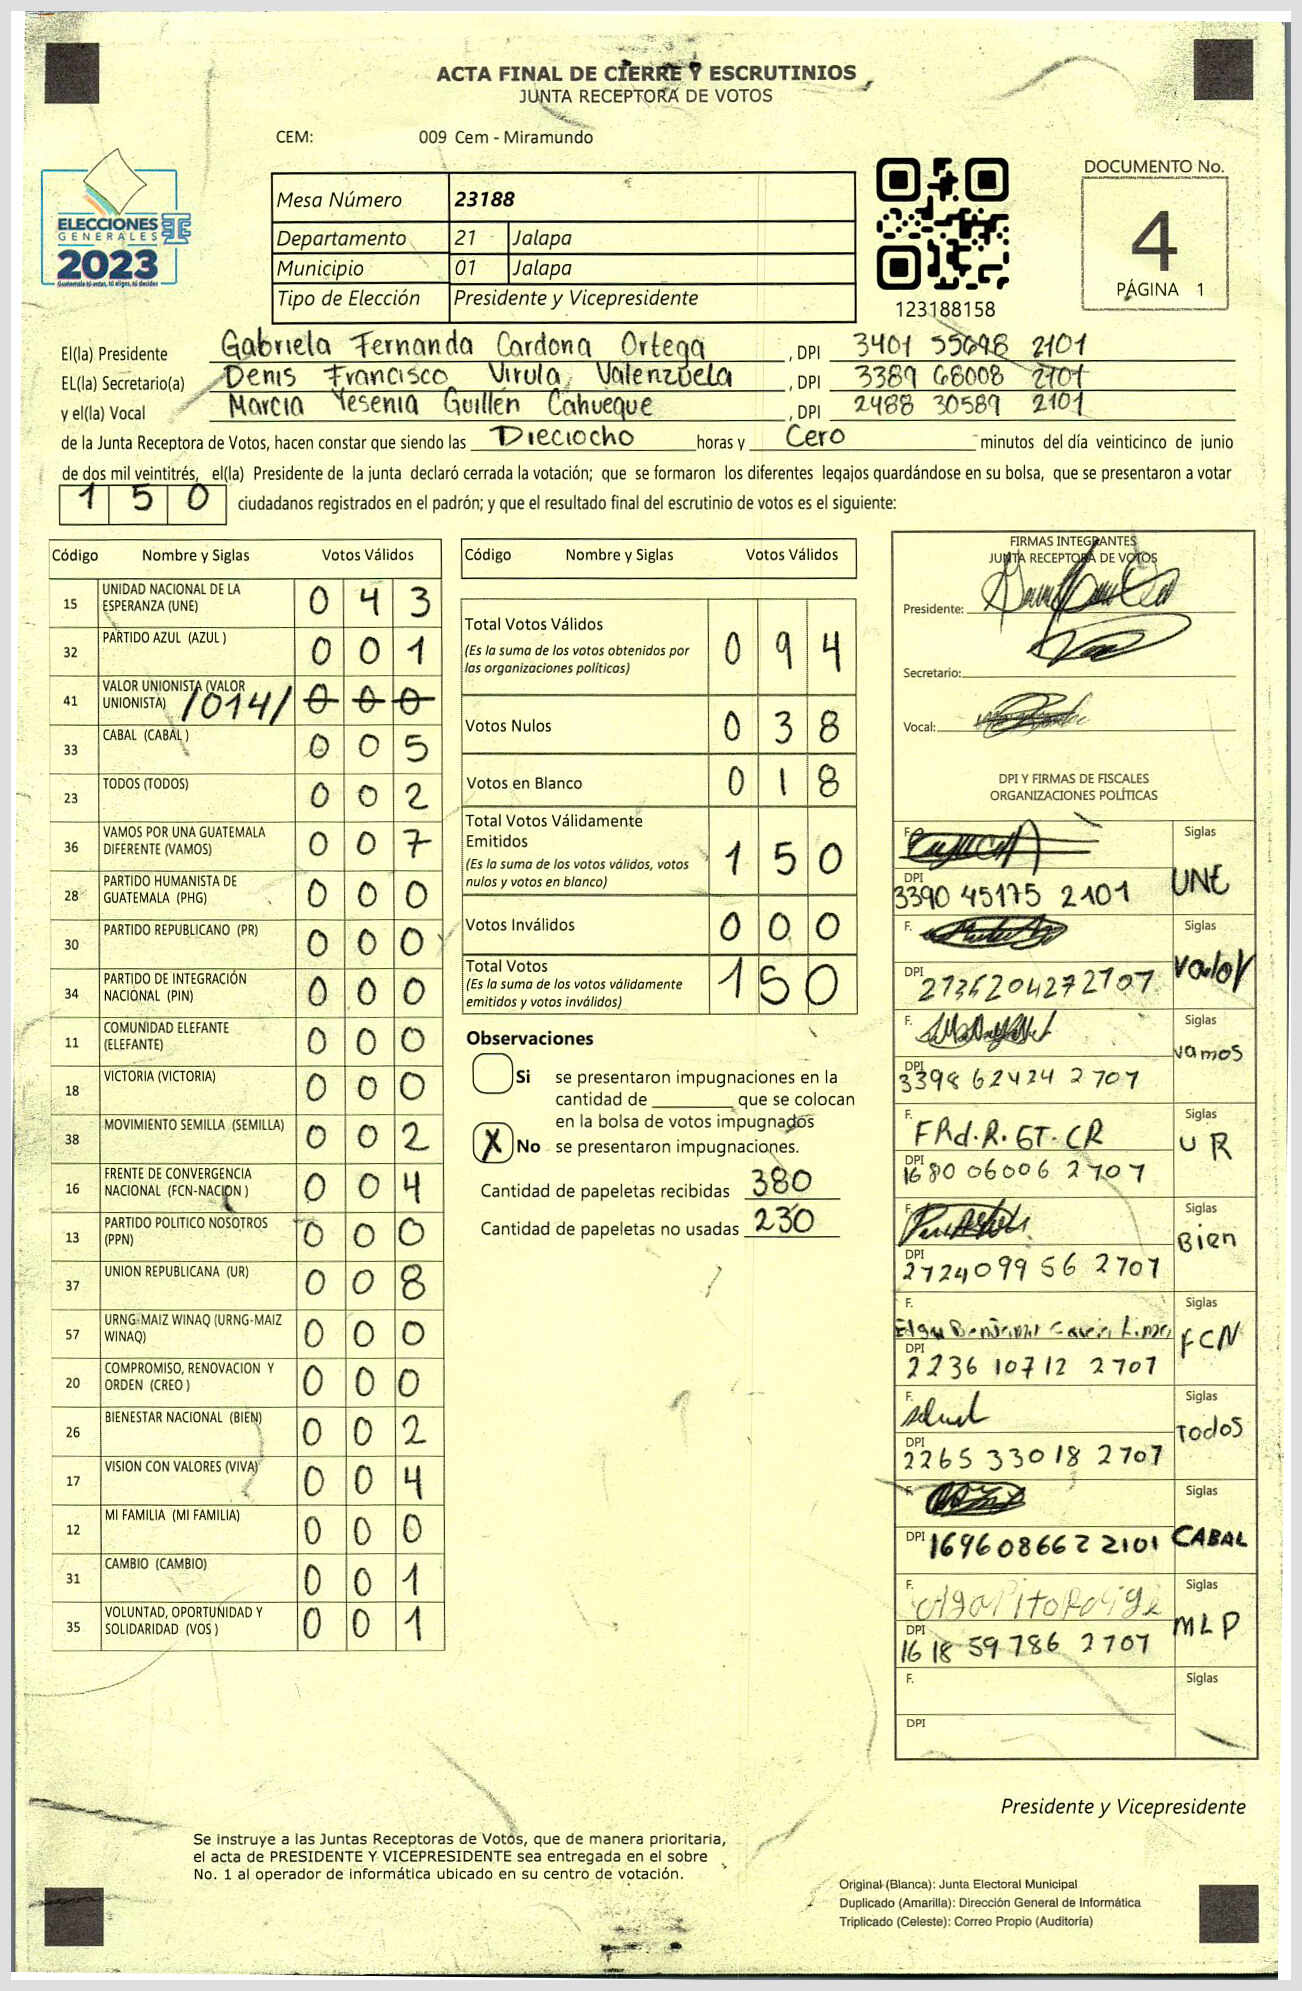 ACTA FINAL DE CIERRE Y ESCRUTINIOS
JUNTA RECEPTORA DE VOTOS
CEM: 009 Cem - Miramundo
ELECCIONES
GENERALES
2023
Guatemala tú votas, tú eliges, tú decides
Mesa Número 23188
Departamento 21 Jalapa
Municipio 01 Jalapa
Tipo de Elección Presidente y Vicepresidente
123188158
DOCUMENTO No.
4
PÁGINA 1
El(la) Presidente Gabriela Fernanda Cardona Ortega, DPI 3401 55698 2101
EL(la) Secretario(a) Denis Francisco Virula Valenzuela, DPI 3389 68008 2101
y el(la) Vocal Marcia Yesenia Guillén Cahueque, DPI 2488 30589 2101
de la Junta Receptora de Votos, hacen constar que siendo las Dieciocho horas y Cero minutos del día veinticinco de junio
de dos mil veintitrés, el(la) Presidente de la junta declaró cerrada la votación; que se formaron los diferentes legajos quardándose en su bolsa, que se presentaron a votar
150 ciudadanos registrados en el padrón; y que el resultado final del escrutinio de votos es el siguiente:
Código Nombre y Siglas Votos Válidos
15 UNIDAD NACIONAL DE LA ESPERANZA (UNE) 0 4 3
32 PARTIDO AZUL (AZUL ) 0 0 1
41 VALOR UNIONISTA (VALOR UNIONISTA) /014/ 0 0 0
33 CABAL (CABAL ) 0 0 5
23 TODOS (TODOS) 0 0 2
36 VAMOS POR UNA GUATEMALA DIFERENTE (VAMOS) 0 0 7
28 PARTIDO HUMANISTA DE GUATEMALA (PHG) 0 0 0
30 PARTIDO REPUBLICANO (PR) 0 0 0
34 PARTIDO DE INTEGRACIÓN NACIONAL (PIN) 0 0 0
11 COMUNIDAD ELEFANTE (ELEFANTE) 0 0 0
18 VICTORIA (VICTORIA) 0 0 0
38 MOVIMIENTO SEMILLA (SEMILLA) 0 0 2
16 FRENTE DE CONVERGENCIA NACIONAL (FCN-NACION ) 0 0 4
13 PARTIDO POLITICO NOSOTROS (PPN) 0 0 0
37 UNION REPUBLICANA (UR) 0 0 8
57 URNG-MAIZ WINAQ (URNG-MAIZ WINAQ) 0 0 0
20 COMPROMISO, RENOVACION Y ORDEN (CREO ) 0 0 0
26 BIENESTAR NACIONAL (BIEN) 0 0 2
17 VISION CON VALORES (VIVA) 0 0 4
12 MI FAMILIA (MI FAMILIA) 0 0 0
31 CAMBIO (CAMBIO) 0 0 1
35 VOLUNTAD, OPORTUNIDAD Y SOLIDARIDAD (VOS ) 0 0 1
Código Nombre y Siglas Votos Válidos
Total Votos Válidos 0 9 4
(Es la suma de los votos obtenidos por
las organizaciones políticas)
Votos Nulos 0 3 8
Votos en Blanco 0 1 8
Total Votos Válidamente
Emitidos 1 5 0
(Es la suma de los votos válidos, votos
nulos y votos en blanco)
Votos Inválidos 0 0 0
Total Votos 1 5 0
(Es la suma de los votos válidamente
emitidos y votos inválidos)
Observaciones
Si se presentaron impugnaciones en la
cantidad de ________ que se colocan
en la bolsa de votos impugnados
X No se presentaron impugnaciones.
Cantidad de papeletas recibidas 380
Cantidad de papeletas no usadas 230
FIRMAS INTEGRANTES
JUNTA RECEPTORA DE VOTOS
Presidente:
Secretario:
Vocal:
DPI Y FIRMAS DE FISCALES
ORGANIZACIONES POLÍTICAS
F. Siglas
DPI 3390 45175 2101 UNE
F. Siglas
DPI 2736204272707 Valor
F. Siglas
DPI 3398 62424 2707 vamos
F. FRd.R.GT.CR Siglas
DPI 1680 06006 2707 UR
F. Siglas
DPI 2724099 56 2707 Bien
F. Siglas
DPI 2236 10712 2707 FCN
F. Siglas
DPI 2265 33018 2707 Todos
F. Siglas
DPI 1696086622101 CABAL
F. Siglas
DPI 1618 59786 2707 MLP
F. Siglas
DPI
Presidente y Vicepresidente
Se instruye a las Juntas Receptoras de Votos, que de manera prioritaria,
el acta de PRESIDENTE Y VICEPRESIDENTE sea entregada en el sobre
No. 1 al operador de informática ubicado en su centro de votación.
Original (Blanca): Junta Electoral Municipal
Duplicado (Amarilla): Dirección General de Informática
Triplicado (Celeste): Correo Propio (Auditoría)